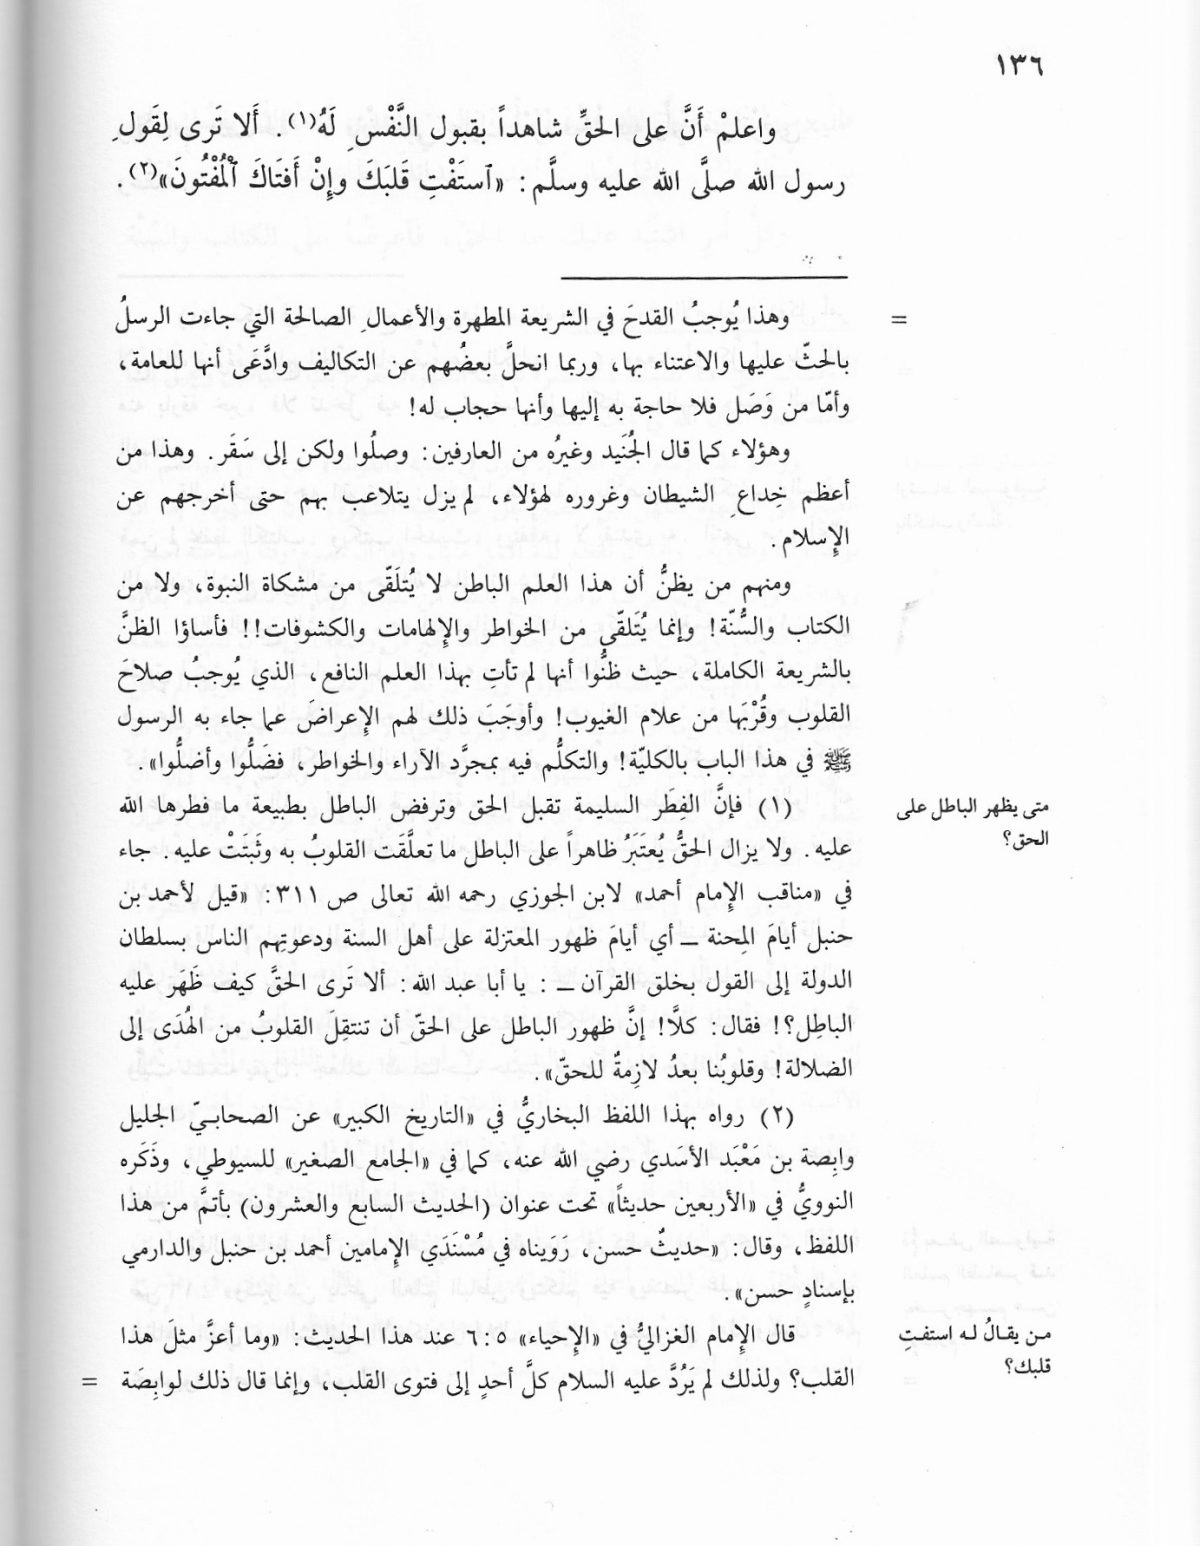 ١٣٦
واعلمْ أَنَّ على الحقِّ شاهداً بقبول النَّفْسِ لَهُ(١). أَلا تَرى لِقَولِ
رسول الله صلَّى الله عليه وسلَّم: «ٱستَفْتِ قَلبَكَ وإِنْ أَفتَاكَ ٱلْمُفْتُونَ»(٢).
= وهذا يُوجبُ القدحَ في الشريعة المطهرة والأعمالِ الصالحة التي جاءت الرسلُ
بالحثّ عليها والاعتناء بها، وربما انحلَّ بعضُهم عن التكاليف وادَّعَى أنها للعامة،
وأمّا من وَصَل فلا حاجة به إليها وأنها حجاب له!
وهؤلاء كما قال الجُنَيد وغيرُه من العارفين: وصلُوا ولكن إلى سَقَر. وهذا من
أعظم خِداعِ الشيطان وغروره لهؤلاء، لم يزل يتلاعب بهم حتى أخرجهم عن
الإِسلام.
ومنهم من يظنُّ أن هذا العلم الباطن لا يُتلَقّى من مشكاة النبوة، ولا من
الكتاب والسُّنّة! وإنما يُتَلقّى من الخواطر والإِلهامات والكشوفات!! فأساؤا الظنَّ
بالشريعة الكاملة، حيث ظنُّوا أنها لم تأتِ بهذا العلم النافع، الذي يُوجبُ صلاحَ
القلوب وقُرْبَها من علام الغيوب! وأوجَبَ ذلك لهم الإِعراضَ عما جاء به الرسول
ﷺ في هذا الباب بالكليّة! والتكلُّم فيه بمجرَّد الآراء والخواطر، فضَلُّوا وأضلُّوا».
(١) فإنَّ الفِطَر السليمة تقبل الحق وترفض الباطل بطبيعة ما فطرها الله
متى يظهر الباطل على
الحق؟
عليه. ولا يزال الحقُّ يُعتَبَرُ ظاهراً على الباطل ما تعلَّقَت القلوبُ به وثَبَتَتْ عليه. جاء
في «مناقب الإِمام أحمد» لابن الجوزي رحمه الله تعالى ص ٣١١: «قيل لأحمد بن
حنبل أيامَ المِحنة ــ أي أيامَ ظهور المعتزلة على أهل السنة ودعوتِهم الناس بسلطان
الدولة إلى القول بخلق القرآن ــ : يا أبا عبد الله: ألا تَرى الحقَّ كيف ظَهَر عليه
الباطِل؟! فقال: كلَّا! إنَّ ظهور الباطل على الحقّ أن تنتقِلَ القلوبُ من الهُدَى إلى
الضلالة! وقلوبُنا بعدُ لازِمةٌ للحقّ».
(٢) رواه بهذا اللفظ البخاريُّ في «التاريخ الكبير» عن الصحابـيّ الجليل
وابِصة بن مَعْبَد الأسَدي رضي الله عنه، كما في «الجامع الصغير» للسيوطي، وذَكَره
النوويُّ في «الأربعين حديثاً» تحت عنوان (الحديث السابع والعشرون) بأتمَّ من هذا
اللفظ، وقال: «حديثٌ حسن، رَوَيناه في مُسْنَدَي الإِمامين أحمد بن حنبل والدارمي
بإسنادٍ حسن».
قال الإِمام الغزاليُّ في «الإِحياء» ٥: ٦ عند هذا الحديث: «وما أعزَّ مثلَ هذا
من يقـالُ لـه استفـتِ
قلبك؟
القلب؟ ولذلك لم يَرُدَّ عليه السلام كلَّ أحدٍ إلى فتوى القلب، وإنما قال ذلك لوابِصَة =